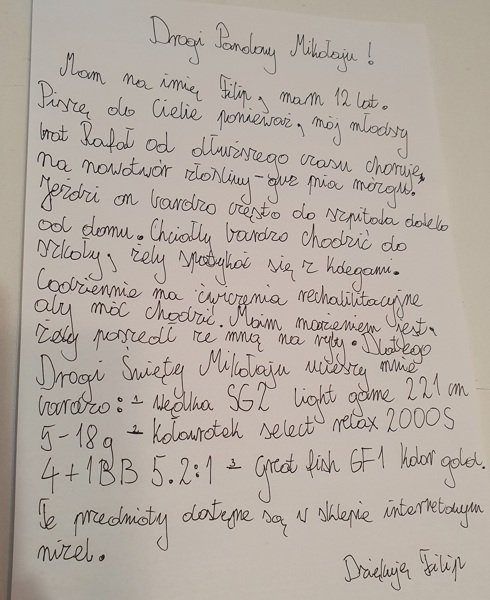 Drogi Pandowy Mikołaju!
Mam na imię Filip, mam 12 lat.
Piszę do Ciebie ponieważ, mój młodszy
brat Rafał od dłuższego czasu choruje,
na nowotwór złośliwy - guz pnia mózgu.
Jeździ on bardzo często do szpitala daleko
od domu. Chciałby bardzo chodzić do
szkoły, żeby spotykać się z kolegami.
Codziennie ma ćwiczenia rechabilitacyjne
aby móc chodzić. Moim marzeniem jest,
żeby poszedł ze mną na ryby. Dlatego
Drogi Święty Mikołaju ucieszy mnie
bardzo: - 1 wędka SG2 light game 221 cm
5-18g - 2 kołowrotek select relax 2000S
4+1BB 5.2:1 - 3 Great fish GF1 kolor gold.
Te przedmioty dostępne są w sklepie internetowym
nizel.
Dziękuję Filip